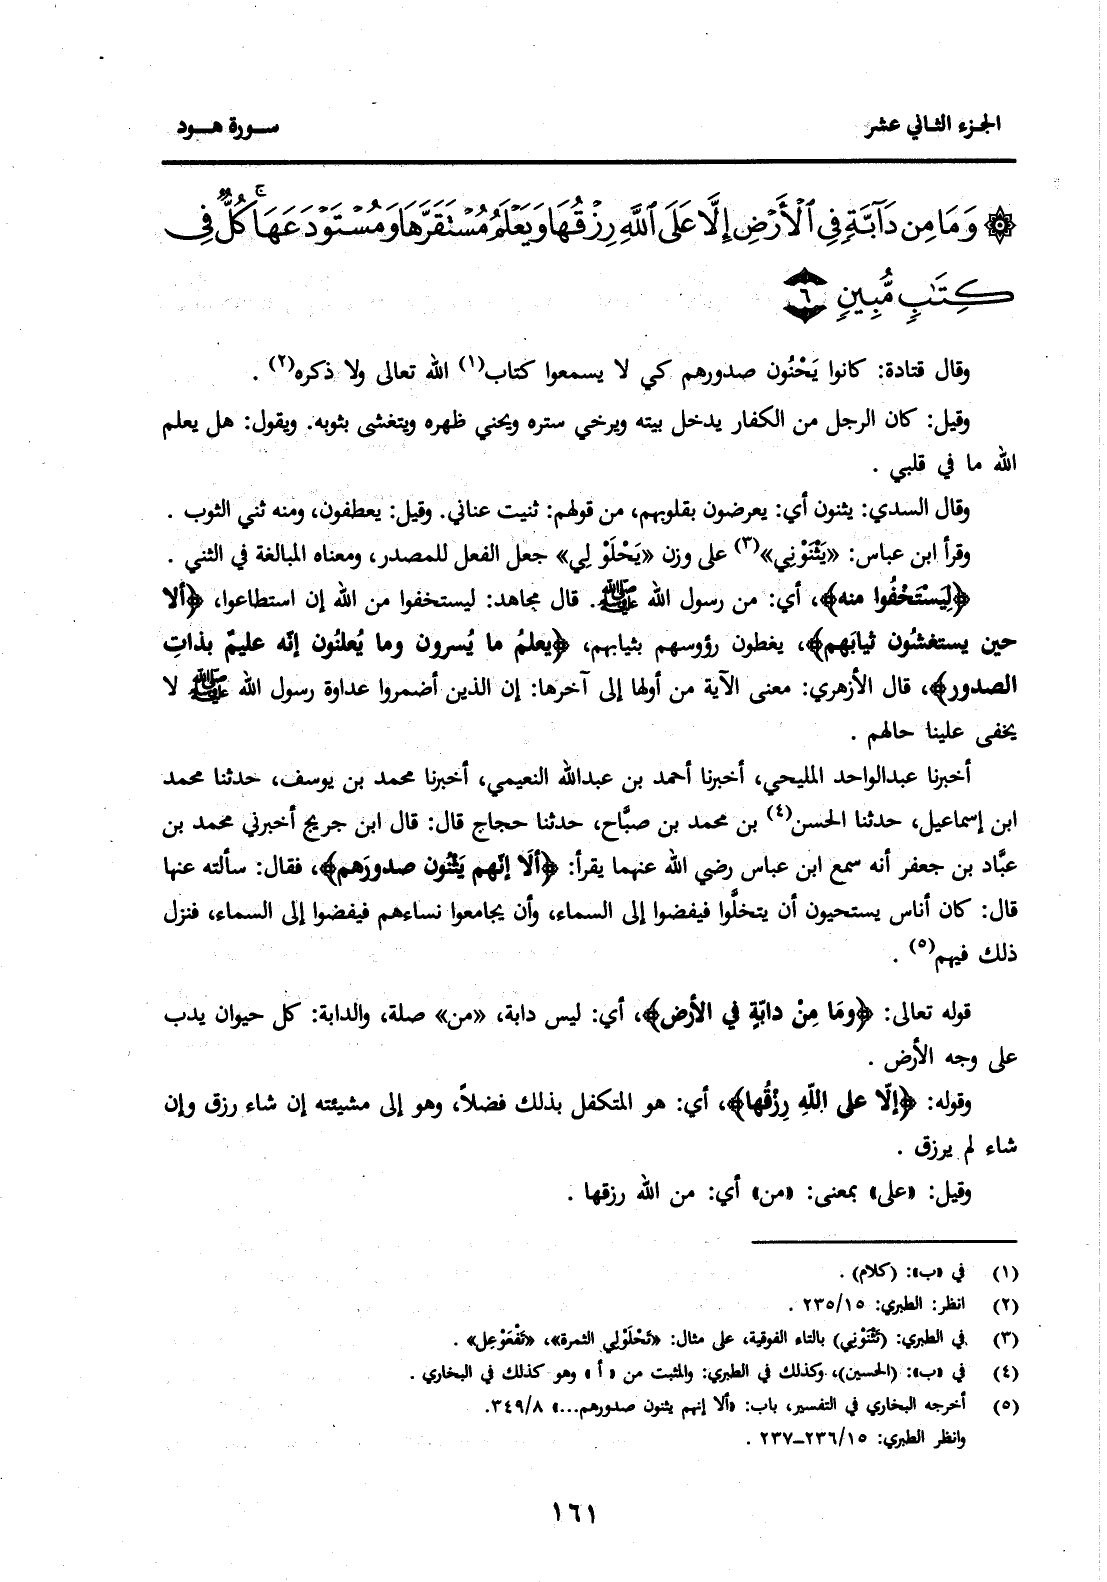 الجزء الثاني عشر
سورة هود
۞ وَمَا مِن دَآبَّةٍ فِي ٱلْأَرْضِ إِلَّا عَلَى ٱللَّهِ رِزْقُهَا وَيَعْلَمُ مُسْتَقَرَّهَا وَمُسْتَوْدَعَهَا ۚ كُلٌّ فِي
كِتَٰبٍ مُّبِينٍ ٦
وقال قتادة: كانوا يَحْنُون صدورهم كي لا يسمعوا كتاب(١) الله تعالى ولا ذكره(٢) .
وقيل: كان الرجل من الكفار يدخل بيته ويرخي ستره ويحني ظهره ويتغشى بثوبه. ويقول: هل يعلم
الله ما في قلبي .
وقال السدي: يثنون أي: يعرضون بقلوبهم، من قولهم: ثنيت عناني. وقيل: يعطفون، ومنه ثني الثوب .
وقرأ ابن عباس: «يَثْنَوْنِي»(٣) على وزن «يَحْلَوْ لِي» جعل الفعل للمصدر، ومعناه المبالغة في الثني .
﴿لِيَسْتَخْفُوا منه﴾، أي: من رسول الله ﷺ. قال مجاهد: ليستخفوا من الله إن استطاعوا، ﴿ألا
حين يستغشُون ثيابَهم﴾، يغطون رؤوسهم بثيابهم، ﴿يعلمُ ما يُسرون وما يُعلنُون إنّه عليمٌ بذاتِ
الصدور﴾، قال الأزهري: معنى الآية من أولها إلى آخرها: إن الذين أضمروا عداوة رسول الله ﷺ لا
يخفى علينا حالهم .
أخبرنا عبدالواحد المليحي، أخبرنا أحمد بن عبدالله النعيمي، أخبرنا محمد بن يوسف، حدثنا محمد
ابن إسماعيل، حدثنا الحسن(٤) بن محمد بن صبَّاح، حدثنا حجاج قال: قال ابن جريج أخبرني محمد بن
عبَّاد بن جعفر أنه سمع ابن عباس رضي الله عنهما يقرأ: ﴿ألَا إنّهم يَثْنُون صدورَهم﴾، فقال: سألته عنها
قال: كان أناس يستحيون أن يتخلَّوا فيفضوا إلى السماء، وأن يجامعوا نساءهم فيفضوا إلى السماء، فنزل
ذلك فيهم(٥) .
قوله تعالى: ﴿ومَا مِنْ دابّةٍ في الأرض﴾، أي: ليس دابة، «من» صلة، والدابة: كل حيوان يدب
على وجه الأرض .
وقوله: ﴿إلّا على اللّهِ رِزْقُها﴾، أي: هو المتكفل بذلك فضلاً، وهو إلى مشيئته إن شاء رزق وإن
شاء لم يرزق .
وقيل: «على» بمعنى: «من» أي: من الله رزقها .
(١) في «ب»: (كلام) .
(٢) انظر: الطبري: ٢٣٥/١٥ .
(٣) في الطبري: (تَثْنَوْنِي) بالتاء الفوقية، على مثال: «تَحْلَوْلِي الثمرة»، «تَفْعَوْعِل» .
(٤) في «ب»: (الحسين)، وكذلك في الطبري: والمثبت من «أ» وهو كذلك في البخاري .
(٥) أخرجه البخاري في التفسير، باب: «ألا إنهم يثنون صدورهم...» ٣٤٩/٨.
وانظر الطبري: ٢٣٦/١٥–٢٣٧ .
١٦١